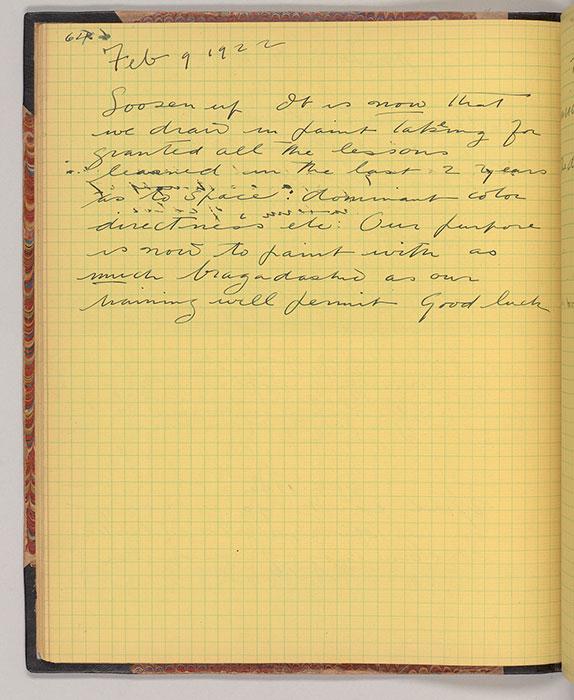 Feb 9 1922
Loosen up It is now that
we draw in paint taking for
granted all the lessons
learned in the last 2 years
as to space: dominant color
directness etc: Our purpose
is now to paint with as
much bragadashio as our
training will permit Good luck